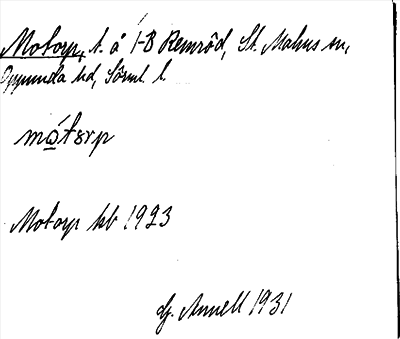 Motorp, t. å 1-B Remröd, St. Malms sn,
Oppunda hd, Sörml. l.
mo̲tsrp
Motorp kb 1923
G. Annell 1931